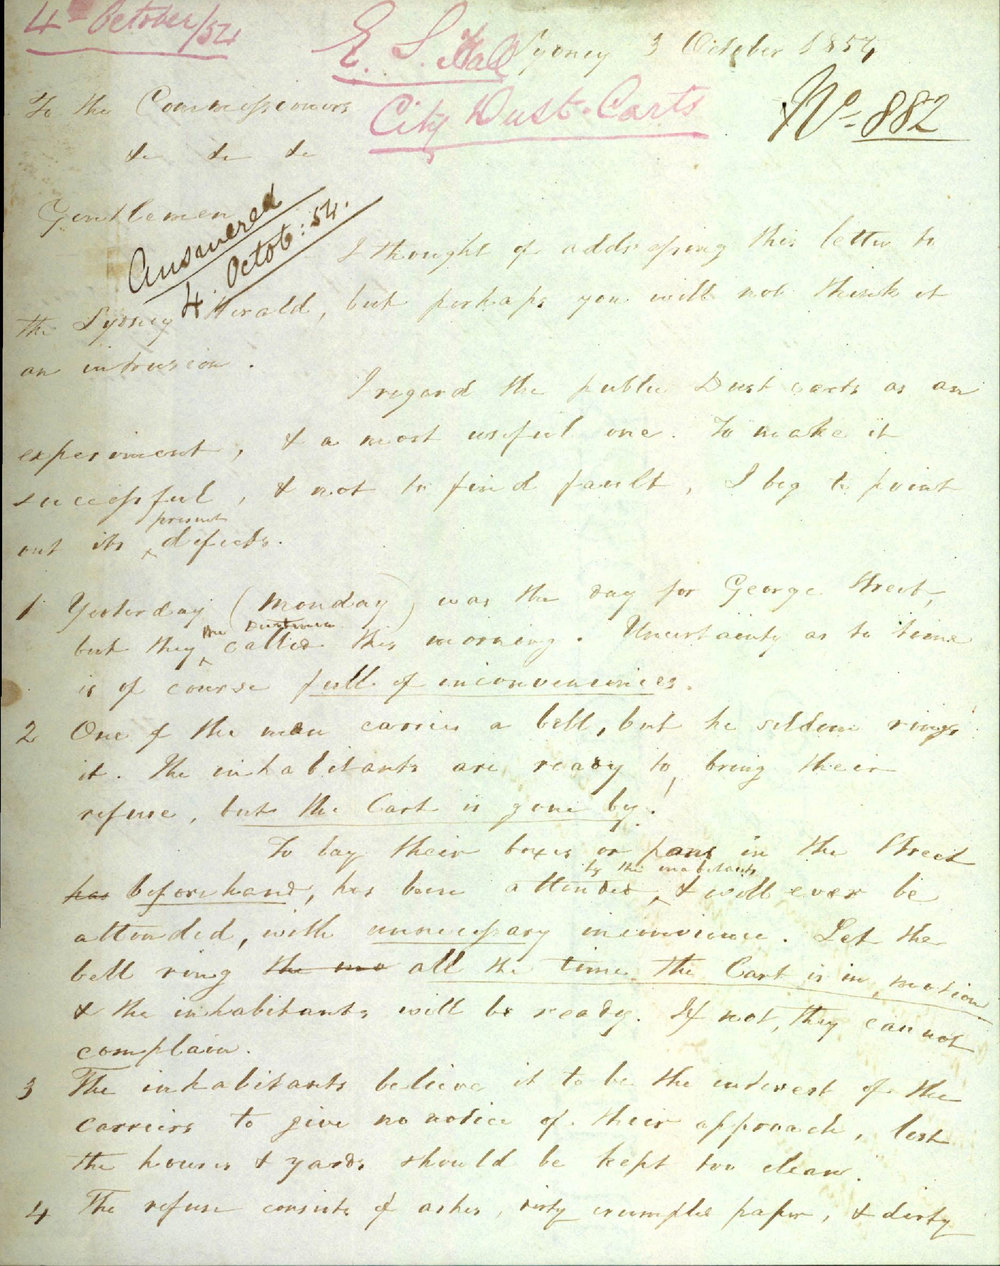 4th October/54
E. S. Hall
Sydney 3 October 1854
To the Commissioners
City Dust-Carts
No. 882
&c &c &c
Gentlemen
Answered
4. Octob: 54.
I thought of addressing this letter to
the Sydney Herald, but perhaps you will not think it
an intrusion.
I regard the public Dust carts as an
experiment, & a most useful one. To make it
successful, & not to find fault, I beg to point
out its present defects.
1 Yesterday (Monday) was the day for George Street,
but they the Dustmen called this morning. Uncertainty as to time
is of course full of inconveniences.
2 One of the men carries a bell, but he seldom rings
it. The inhabitants are ready to bring their
refuse, but the Cart is gone by!
To lay their boxes or pans in the Street
has beforehand, has been attended, by the inhabitants & will ever be
attended, with unnecessary inconvenience. Let the
bell ring the mo all the time the Cart is in motion
& the inhabitants will be ready. If not, they cannot
complain.
3 The inhabitants believe it to be the interest of the
carriers to give no notice of their approach, lest
the houses & yards should be kept too clean.
4 The refuse consists of ashes, crumpled paper, & dirty